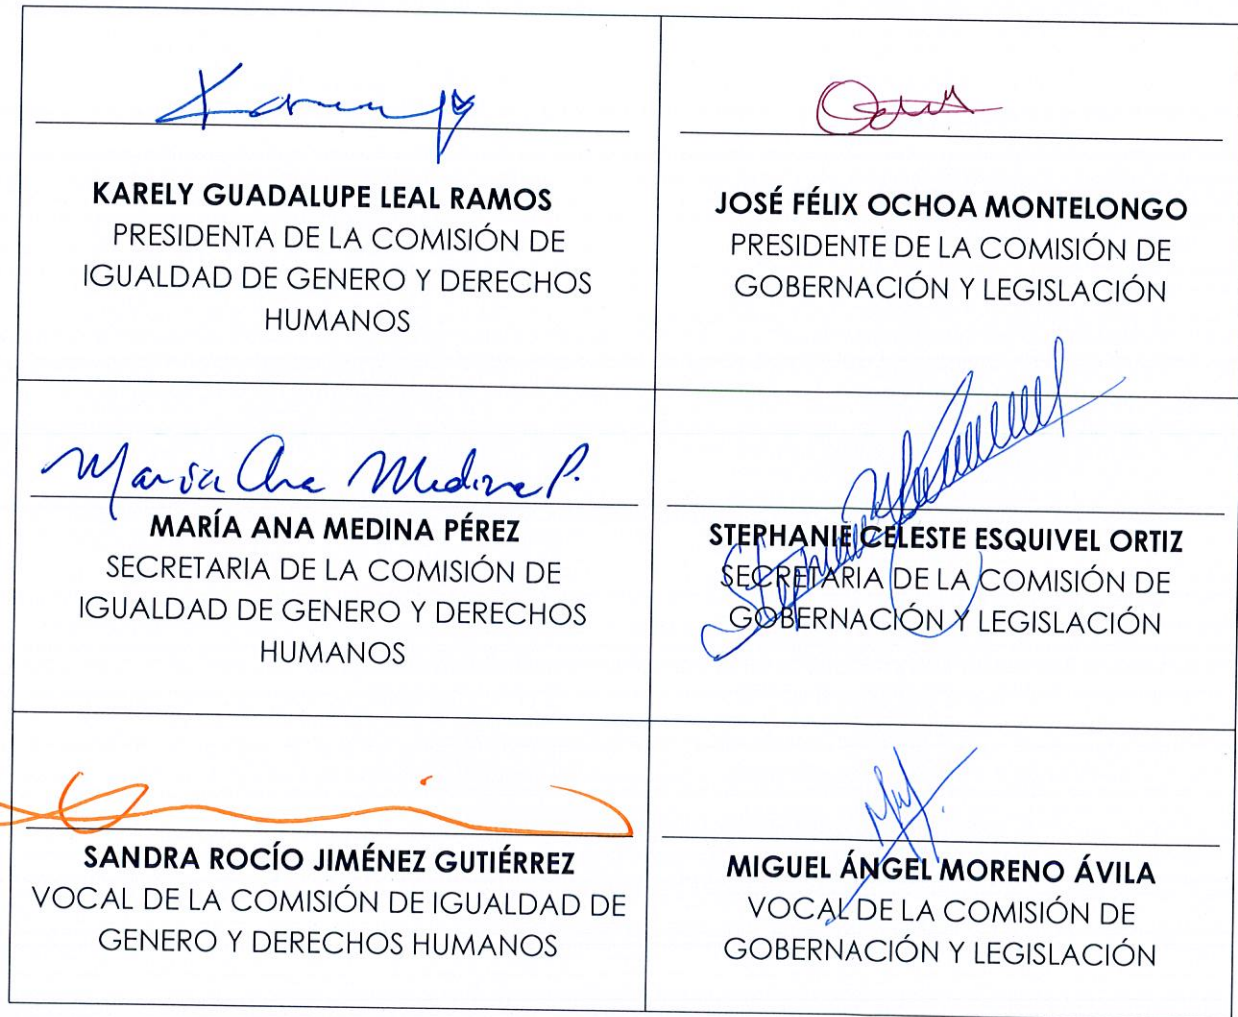 KARELY GUADALUPE LEAL RAMOS
PRESIDENTA DE LA COMISIÓN DE
IGUALDAD DE GENERO Y DERECHOS
HUMANOS
JOSÉ FÉLIX OCHOA MONTELONGO
PRESIDENTE DE LA COMISIÓN DE
GOBERNACIÓN Y LEGISLACIÓN
María Ana Medina P.
MARÍA ANA MEDINA PÉREZ
SECRETARIA DE LA COMISIÓN DE
IGUALDAD DE GENERO Y DERECHOS
HUMANOS
STEPHANIE CELESTE ESQUIVEL ORTIZ
SECRETARIA DE LA COMISIÓN DE
GOBERNACIÓN Y LEGISLACIÓN
SANDRA ROCÍO JIMÉNEZ GUTIÉRREZ
VOCAL DE LA COMISIÓN DE IGUALDAD DE
GENERO Y DERECHOS HUMANOS
MIGUEL ÁNGEL MORENO ÁVILA
VOCAL DE LA COMISIÓN DE
GOBERNACIÓN Y LEGISLACIÓN